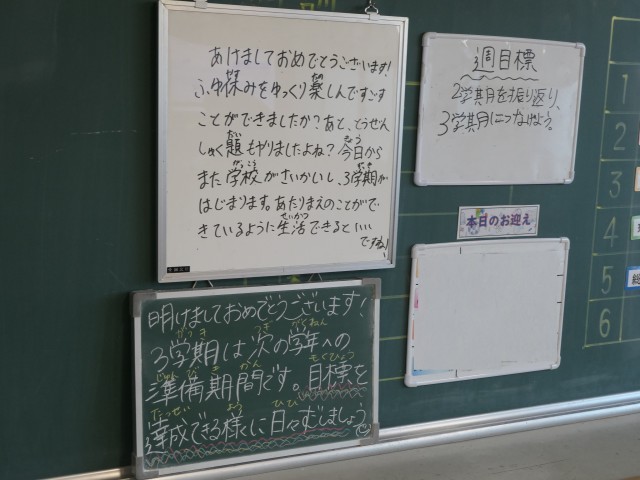 あけましておめでとうございます!
ふゆ休みをゆっくり楽しんですごす
ことができましたか?あと、とうぜん
しゅく題もやりましたよね?今日から
また学校がさいかいし、3学期が
はじまります。あたりまえのことがで
きているように生活できるといい
ですね!
明けましておめでとうございます!
3学期は次の学年への
準備期間です。目標を
達成できる様に日々すごしましょう
週目標
2学期を振り返り、
3学期につなげよう。
本日のお迎え
1
2
3
4
5
6